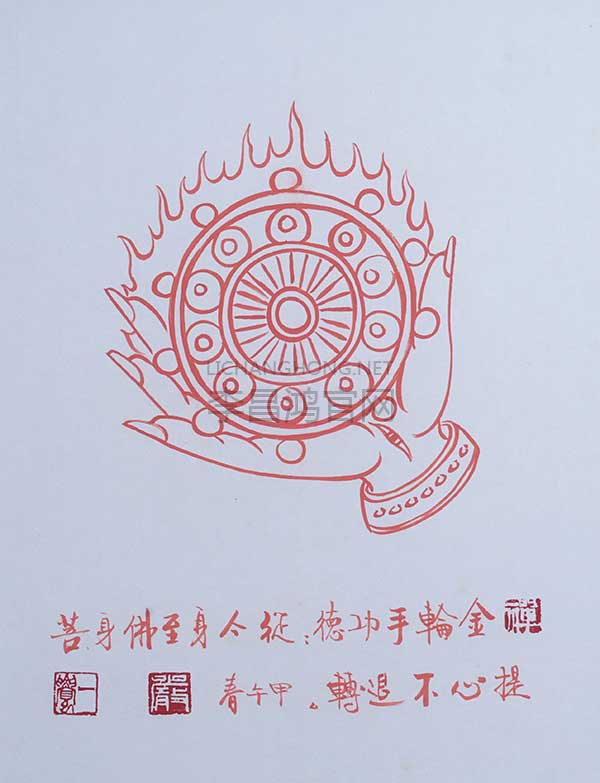 LICHANGHONG.NET
李昌鸿官网
禪
金輪手功德：從今身至佛身、菩
提心不退轉。甲午春